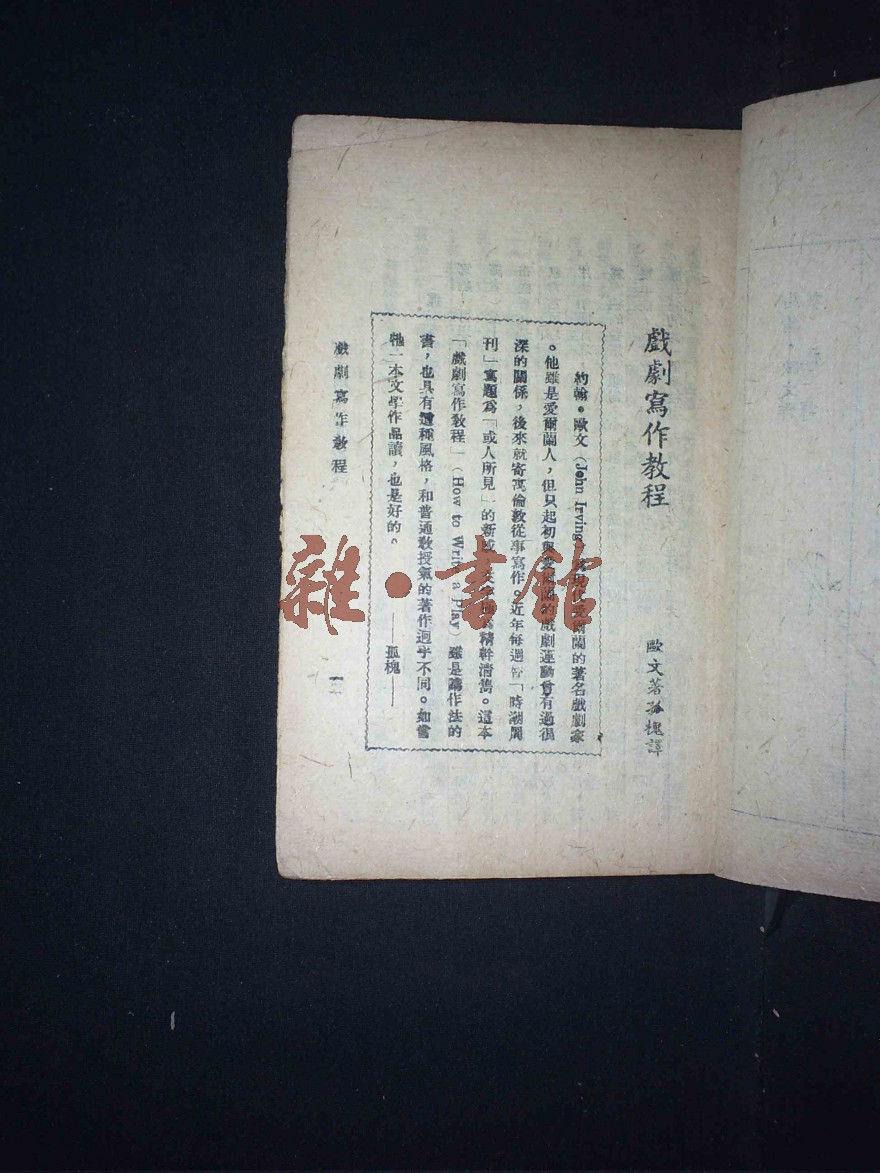 戲劇寫作教程
歐文著孤槐譯
約翰。歐文(John Irving 現代愛爾蘭的著名戲劇家
。他雖是愛爾蘭人,但只起初與愛爾蘭的戲劇運動會有過很
深的關係,後來就寄寓倫敦從事寫作。近年每週皆「時潮周
刊」寫題為「或人所見」的新 精幹清雋。這本
「戲劇寫作教程」(How to Write a Play)雖是講作法的
書,也具有這種風格,和普通教授氣的著作迥乎不同。如當
牠一本文學作品讀,也是好的。
——孤槐——
戲劇寫作教程
雜·書館